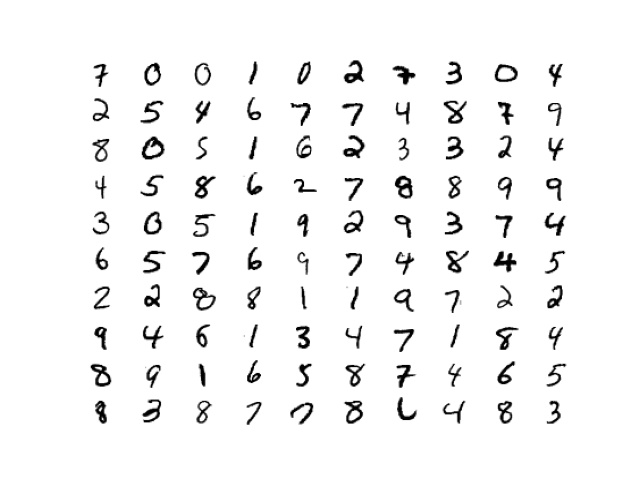 7 0 0 1 0 2 7 3 0 4
2 5 4 6 7 7 4 8 7 9
8 0 5 1 6 2 3 3 2 4
4 5 8 6 2 7 8 8 9 9
3 0 5 1 9 2 9 3 7 4
6 5 7 6 9 7 4 8 4 5
2 2 8 8 1 1 9 7 2 2
9 4 6 1 3 4 7 1 8 4
8 9 1 6 5 8 7 4 6 5
8 3 8 7 7 8 6 4 8 3